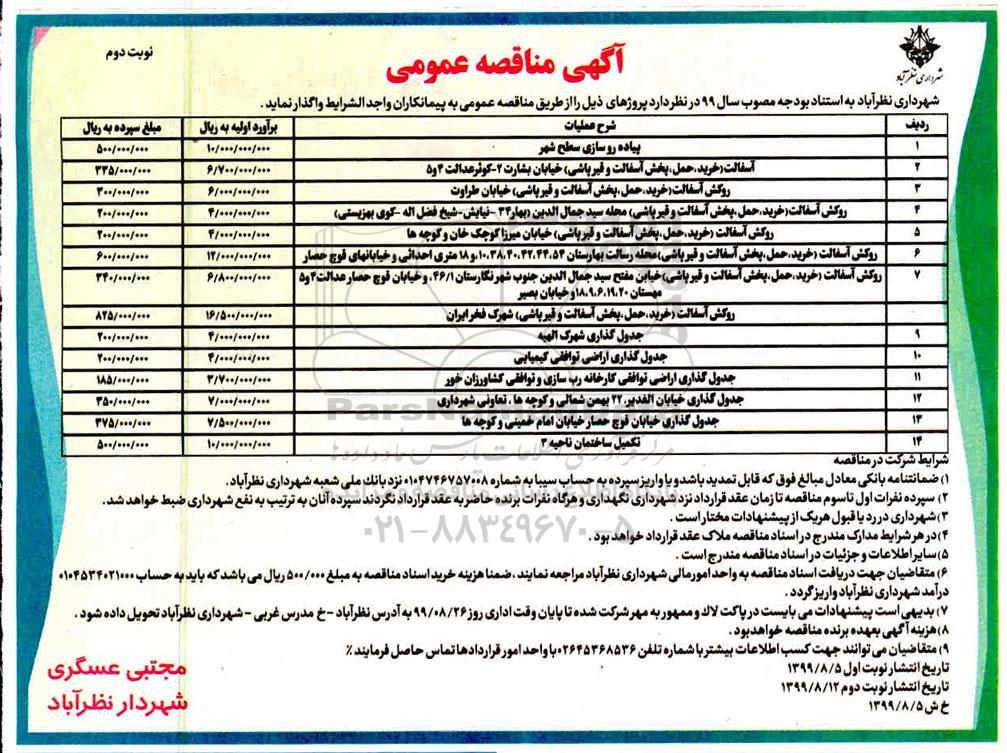 شهرداری نظرآباد
نوبت دوم
آگهی مناقصه عمومی
شهرداری نظرآباد به استناد بودجه مصوب سال ۹۹ در نظر دارد پروژهای ذیل را از طریق مناقصه عمومی به پیمانکاران واجد الشرایط واگذار نماید .
ردیف شرح عملیات برآورد اولیه به ریال مبلغ سپرده به ریال
۱ پیاده رو سازی سطح شهر ۱۰/۰۰۰/۰۰۰/۰۰۰ ۵۰۰/۰۰۰/۰۰۰
۲ آسفالت(خرید،حمل،پخش آسفالت و قیر پاشی) خیابان بشارت ۲-کوثرعدالت ۴و۵ ۶/۷۰۰/۰۰۰/۰۰۰ ۳۳۵/۰۰۰/۰۰۰
۳ روکش آسفالت(خرید،حمل،پخش آسفالت و قیر پاشی) خیابان طراوت ۶/۰۰۰/۰۰۰/۰۰۰ ۳۰۰/۰۰۰/۰۰۰
۴ روکش آسفالت(خرید،حمل،پخش آسفالت و قیر پاشی) محله سید جمال الدین (بهار۳۴ -نیایش-شیخ فضل اله -کوی بهزیستی) ۴/۰۰۰/۰۰۰/۰۰۰ ۲۰۰/۰۰۰/۰۰۰
۵ روکش آسفالت (خرید،حمل،پخش آسفالت و قیر پاشی) خیابان میرزا کوچک خان و کوچه ها ۴/۰۰۰/۰۰۰/۰۰۰ ۲۰۰/۰۰۰/۰۰۰
۶ روکش آسفالت (خرید،حمل،پخش آسفالت و قیر پاشی)محله رسالت بهارستان ۱۰،۳۸،۴۰،۴۲،۴۴،۵۴،و ۱۸ متری احداثی و خیابانهای قوچ حصار ۱۲/۰۰۰/۰۰۰/۰۰۰ ۶۰۰/۰۰۰/۰۰۰
۷ روکش آسفالت (خرید،حمل،پخش آسفالت و قیر پاشی) خیابان مفتح سید جمال الدین جنوب شهر نگارستان ۴۶/۱، و خیابان قوچ حصار عدالت ۴و۵ ۶/۸۰۰/۰۰۰/۰۰۰ ۳۴۰/۰۰۰/۰۰۰
مهستان ۱۸،۹،۶،۱۹،۲۰و خیابان بصیر
روکش آسفالت (خرید،حمل،پخش آسفالت و قیر پاشی) شهرک فخر ایران ۱۶/۵۰۰/۰۰۰/۰۰۰ ۸۲۵/۰۰۰/۰۰۰
۹ جدول گذاری شهرک الهیه ۴/۰۰۰/۰۰۰/۰۰۰ ۲۰۰/۰۰۰/۰۰۰
۱۰ جدول گذاری اراضی توافقی کیمیایی ۴/۰۰۰/۰۰۰/۰۰۰ ۲۰۰/۰۰۰/۰۰۰
۱۱ جدول گذاری اراضی توافقی کارخانه رب سازی و توافقی کشاورزان خور ۳/۷۰۰/۰۰۰/۰۰۰ ۱۸۵/۰۰۰/۰۰۰
۱۲ جدول گذاری خیابان الغدیر، ۲۲ بهمن شمالی و کوچه ها ، تعاونی شهرداری ۷/۰۰۰/۰۰۰/۰۰۰ ۳۵۰/۰۰۰/۰۰۰
۱۳ جدول گذاری خیابان قوچ حصار خیابان امام خمینی و کوچه ها ۷/۵۰۰/۰۰۰/۰۰۰ ۳۷۵/۰۰۰/۰۰۰
۱۴ تکمیل ساختمان ناحیه ۳ ۱۰/۰۰۰/۰۰۰/۰۰۰ ۵۰۰/۰۰۰/۰۰۰
شرایط شرکت در مناقصه
۱) ضمانتنامه بانکی معادل مبالغ فوق که قابل تمدید باشد و یا واریز سپرده به حساب سیبا به شماره ۰۱۰۴۷۴۶۷۵۷۰۰۸ نزد بانك ملی شعبه شهرداری نظرآباد.
۲) سپرده نفرات اول تا سوم مناقصه تا زمان عقد قرارداد نزد شهرداری نگهداری و هرگاه نفرات برنده حاضر به عقد قرارداد نگردند سپرده آنان به ترتیب به نفع شهرداری ضبط خواهد شد.
۳) شهرداری در رد یا قبول هریک از پیشنهادات مختار است .
۴) در هر شرایط مدارک مندرج در اسناد مناقصه ملاک عقد قرارداد خواهد بود .
۵) سایر اطلاعات و جزئیات در اسناد مناقصه مندرج است .
۶) متقاضیان جهت دریافت اسناد مناقصه به واحد امورمالی شهرداری نظرآباد مراجعه نمایند ، ضمنا هزینه خرید اسناد مناقصه به مبلغ ۵۰۰/۰۰۰ ریال می باشد که باید به حساب ۰۱۰۴۵۳۴۰۲۱۰۰۰
درآمد شهرداری نظرآباد واریز گردد .
۷) بدیهی است پیشنهادات می بایست در پاکت لاك و ممهور به مهر شرکت شده تا پایان وقت اداری روز ۹۹/۰۸/۲۶ به آدرس نظرآباد – خ مدرس غربی – شهرداری نظرآباد تحویل داده شود .
۸) هزینه آگهی بعهده برنده مناقصه خواهد بود .
۹) متقاضیان می توانند جهت کسب اطلاعات بیشتر با شماره تلفن ۰۲۶۴۵۳۶۸۵۳۶ با واحد امور قراردادها تماس حاصل فرمایند ٪
تاریخ انتشار نوبت اول ۱۳۹۹/۸/۵
تاریخ انتشار نوبت دوم ۱۳۹۹/۸/۱۲
خ ش ۱۳۹۹/۸/۵
مجتبی عسگری
شهردار نظرآباد
۰۲۱-۸۸۳۴۹۶۷۰-۵